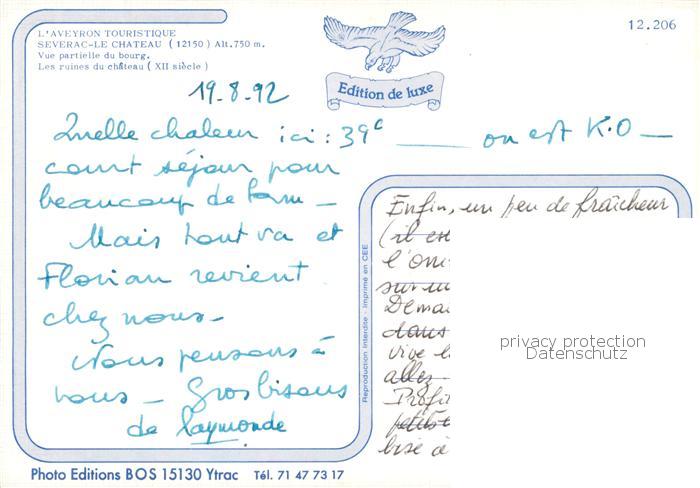 L'AVEYRON TOURISTIQUE
SEVERAC-LE CHATEAU (12150) Alt.750 m.
Vue partielle du bourg.
Les ruines du château (XII siècle)
12.206
Edition de luxe
19.8.92
Quelle chaleur ici : 39° — on est K.O —
court séjour pour
beaucoup de
Mais tout va et
Florian revient
chez nous -
Nous pensons à
vous - Gros bisous
de Raymonde
Enfin, un peu de fraîcheur
(il est
l'om
sur
Demai
dans
vive l
allez
Profi
petits
bise à
privacy protection
Datenschutz
Reproduction Interdite - Imprimé en CEE
Photo Editions BOS 15130 Ytrac Tél. 71 47 73 17